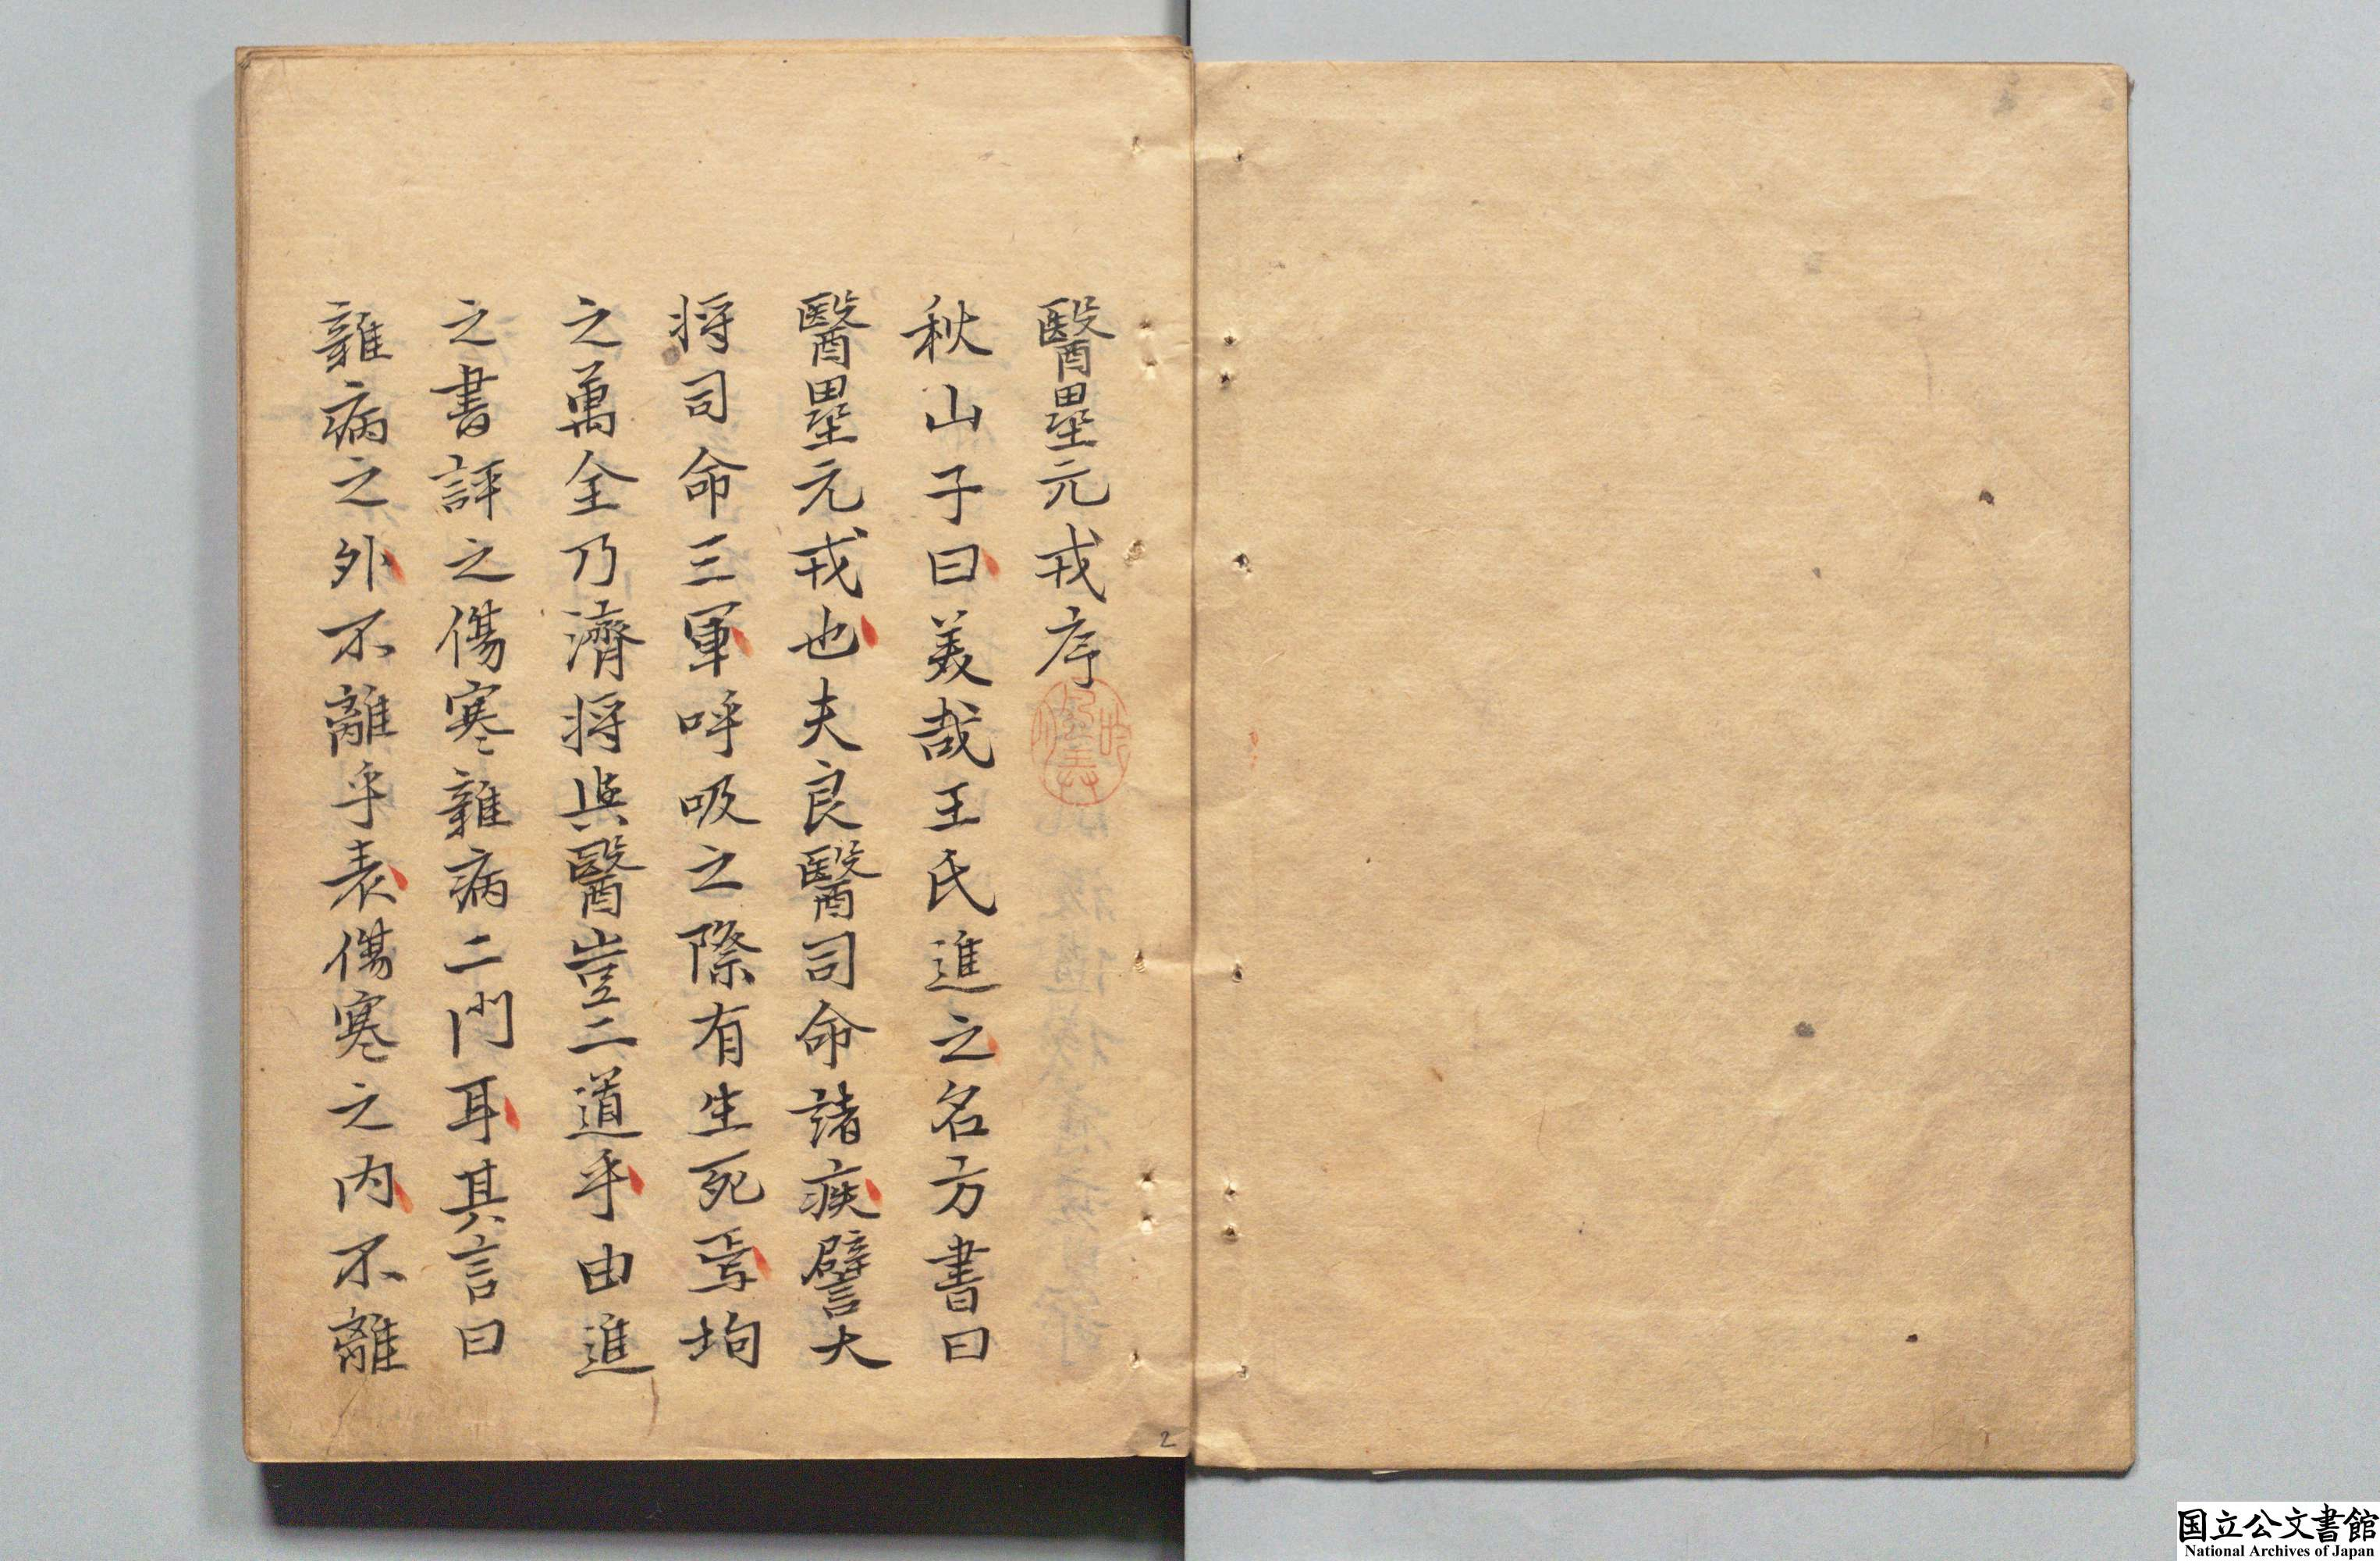 醫壘元戎序
秋山子曰美哉王氏進之名方書曰
醫壘元戎也夫良醫司命諸疾譬大
将司命三軍呼吸之際有生死焉均
之萬全乃濟将與醫豈二道乎由進
之書評之傷寒雜病二門耳其言曰
雜病之外不離乎表傷寒之内不離
2
国立公文書館
National Archives of Japan